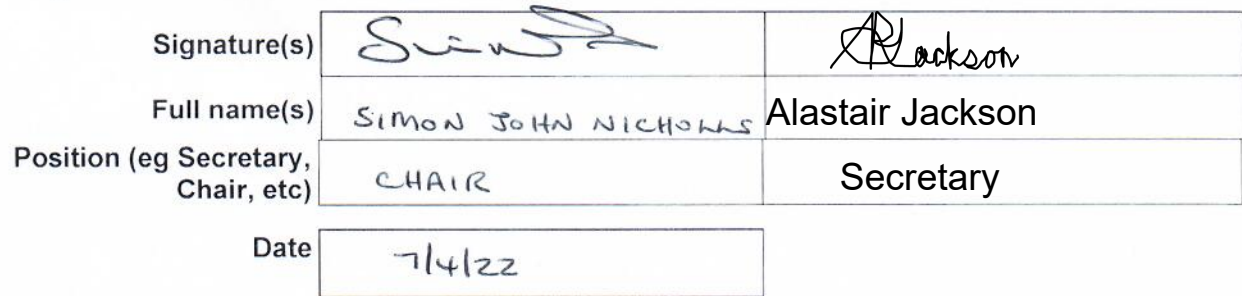 Signature(s) Jackson
Full name(s) SIMON JOHN NICHOLLS Alastair Jackson
Position (eg Secretary,
Chair, etc) CHAIR Secretary
Date 7/4/22